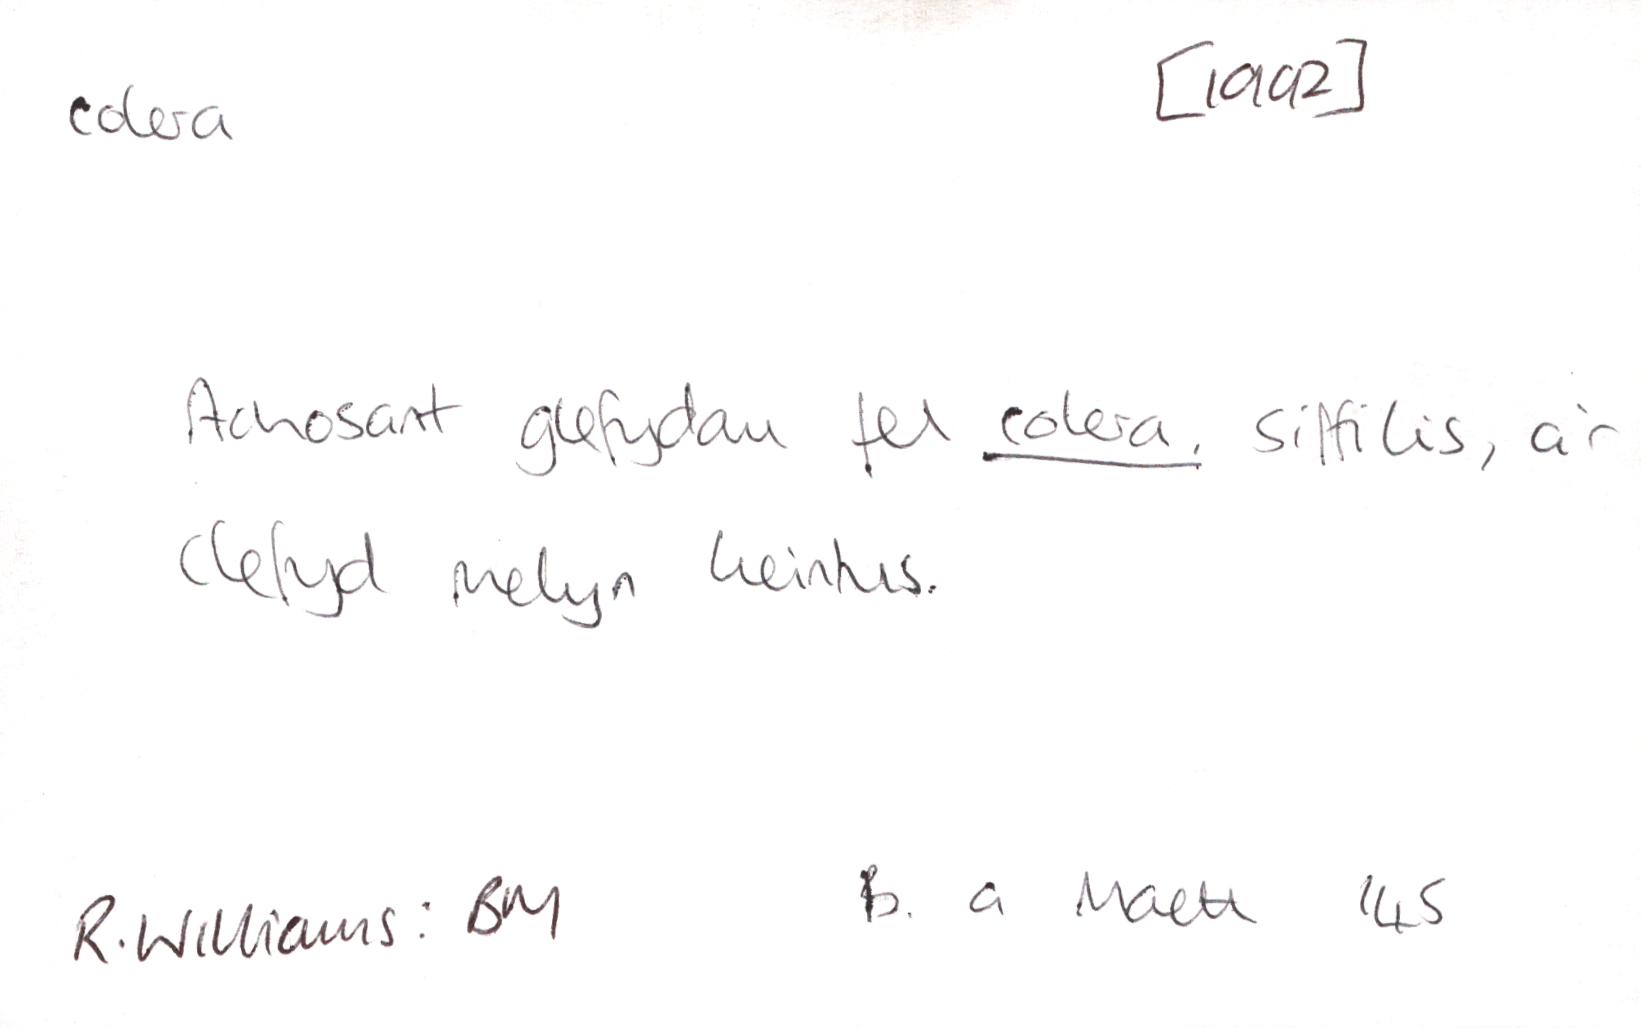 colera [1992]
Achosant glefydau fel colera, siffilis, a'r
clefyd melyn heintus.
R. Williams: BM B. a Maeth 145